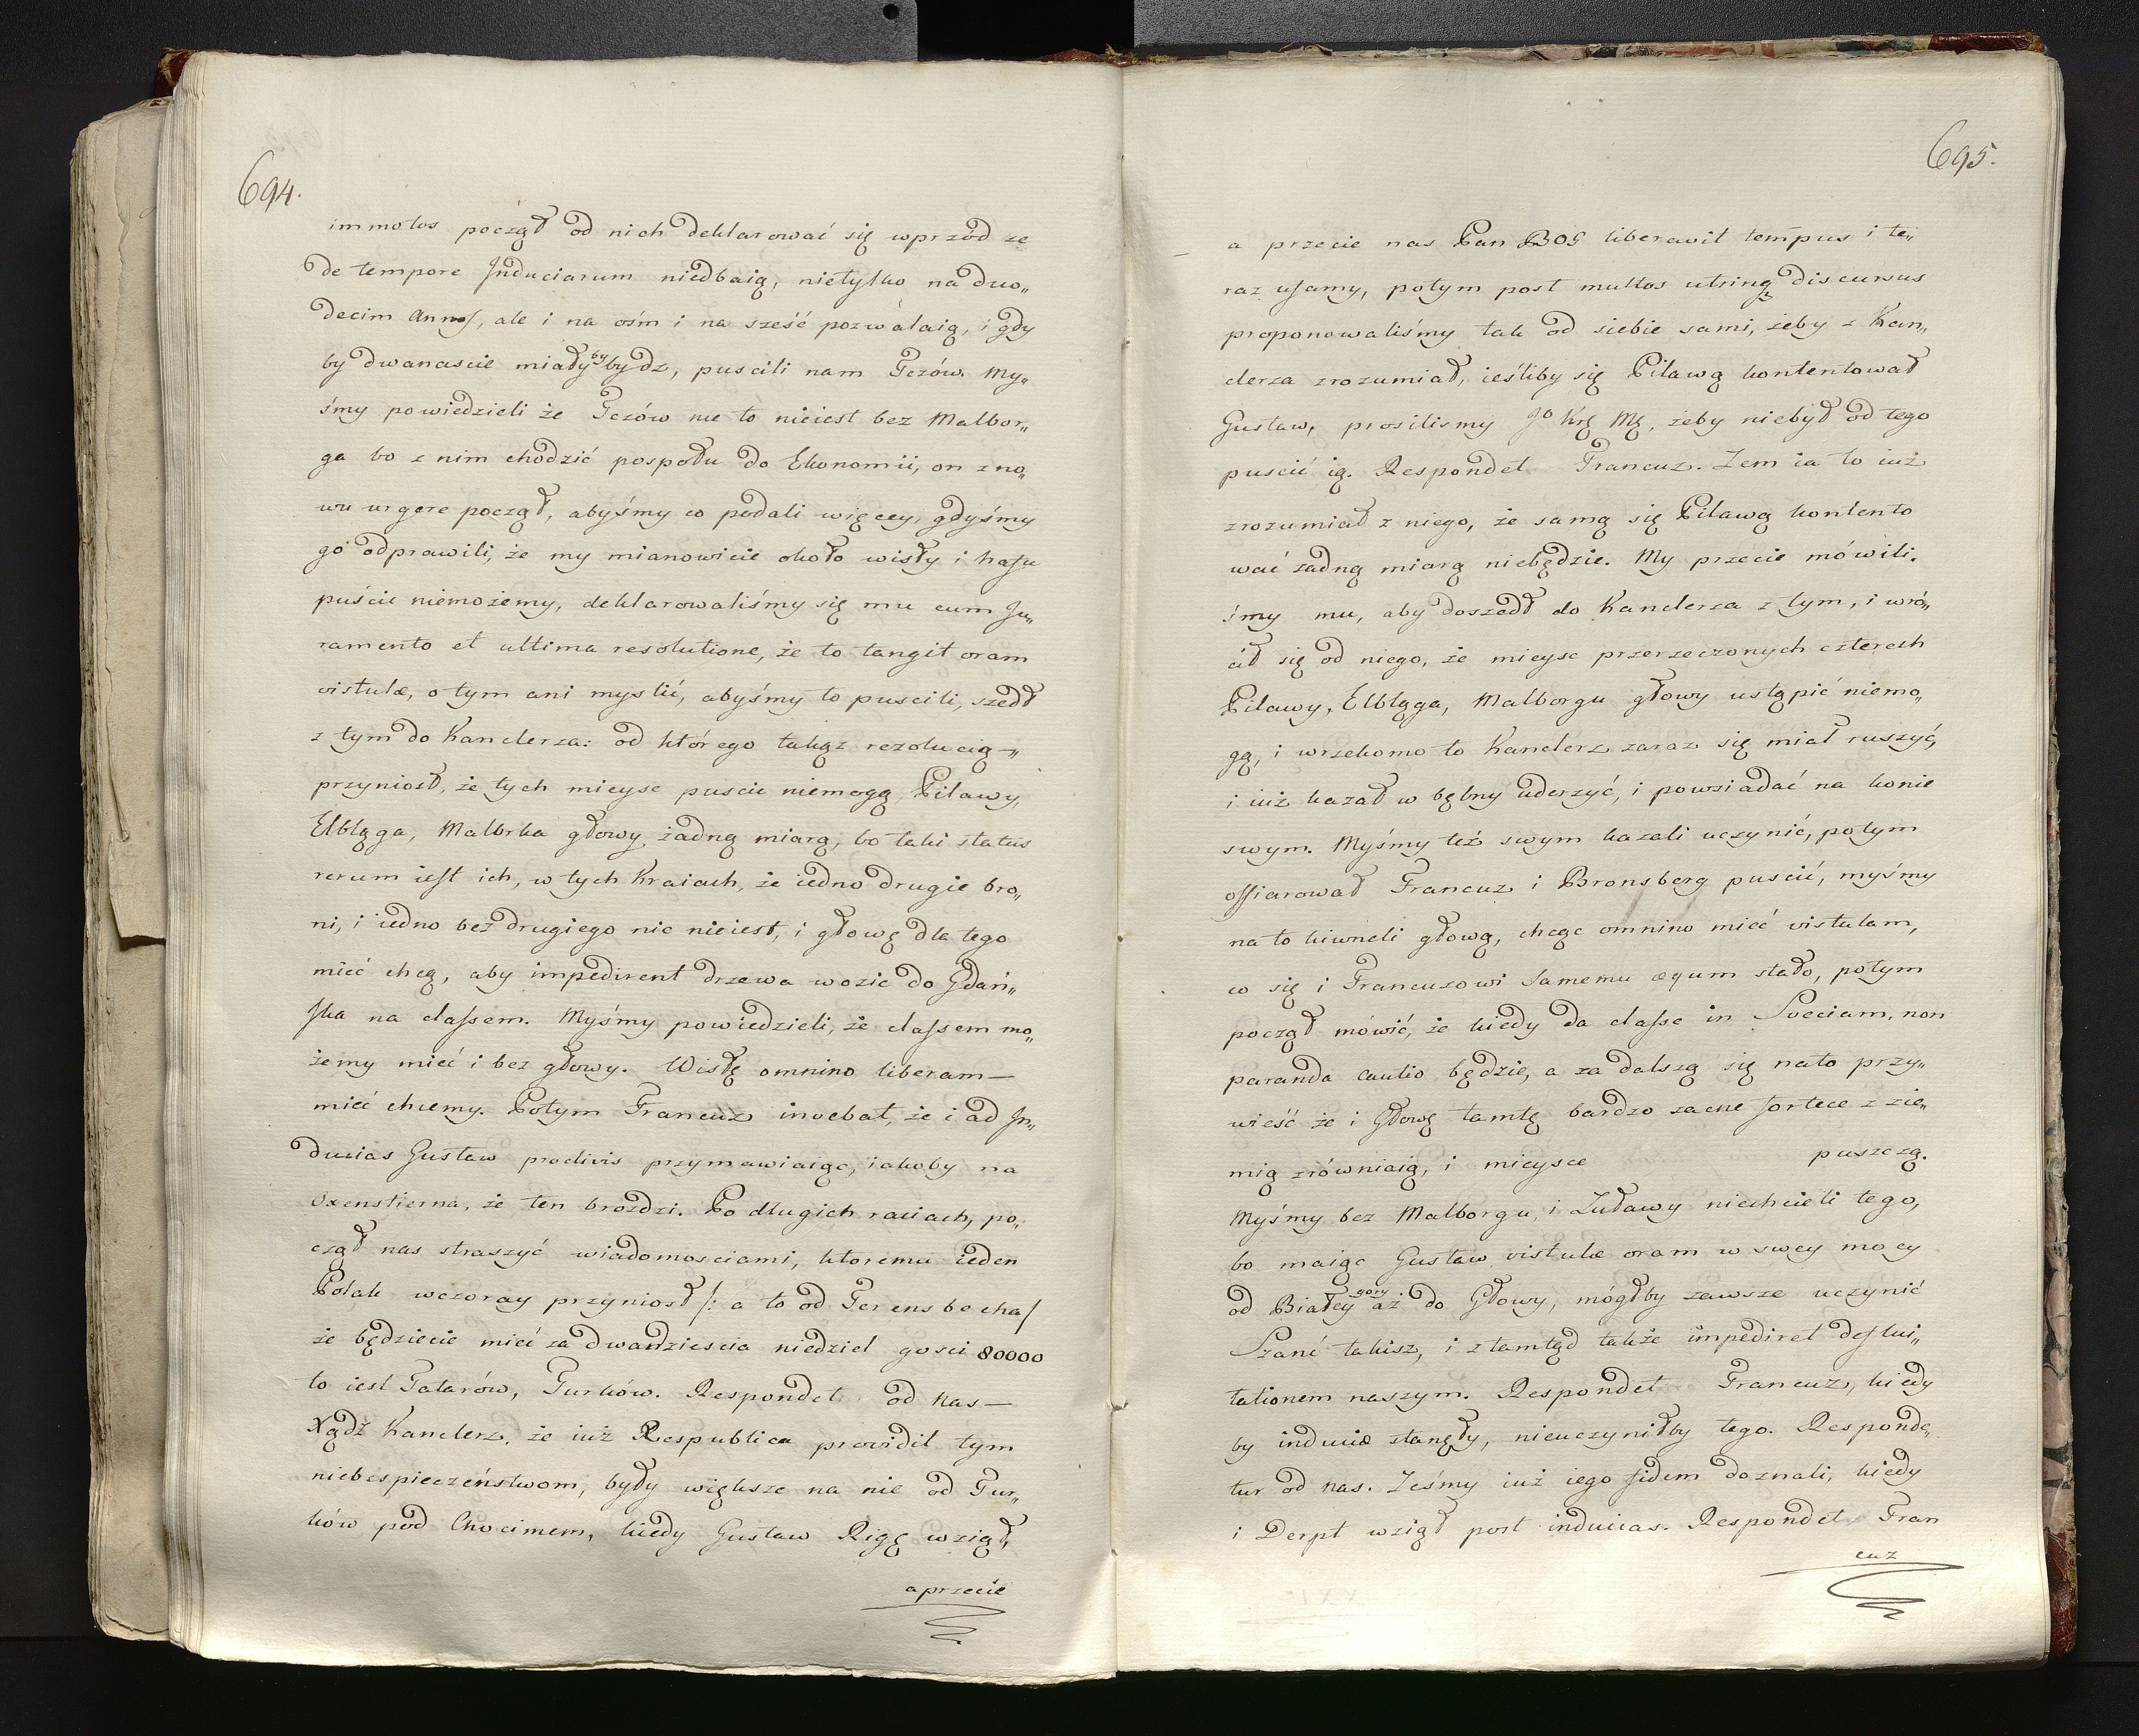 694.
immotos począł od nich deklarować się wprzód ze
de tempore Induciarum niedbaią, nietylko na duo„
decim Annos, ale i na ośm i na sześć pozwalaią, i gdy
by dwanascie miały by bydz, puscili nam Tczów. My„
śmy powiedzieli że Tczów nie to nieiest bez Malbor„
ga bo z nim chodzić pospołu do Ekonomii, on zno„
wu urgere począł, abyśmy co podali więcey, gdyśmy
go odprawili, że my mianowicie około wisły i hafu
puście niemożemy, deklarowaliśmy się mu cum Ju„
ramento et ultima resolutione, że to tangit oram
vistulæ, o tym ani myslić, abyśmy to puscili, szedł
z tym do Kanclerza: od którego takąz rezolucią„
przyniosł, że tych mieysc puscic niemogą, Pilawy,
Elbląga, Malbrka głowy, żadną miarą, bo taki status
rerum iest ich, w tych Kraiach, że iedno drugie bro„
ni, i iedno beż drugiego nic nieiest, i głowę dla tego
mieć chcą, aby impedirent drzewa wozic do Gdań„
ska na classem. Myśmy powiedzieli, że classem mo„
żemy mieć i bez głowy. Wisłę omnino liberam—
mieć chcemy. Potym Francuz invebat, że i ad In„
ducias Gustaw proclivis przymawiaiąc, iakoby na
Oxenstierna, że ten brozdzi. Po długich raciach, po„
czął nas straszyć wiadomosciami, ktoremu ieden
Polak wczoray przyniosł /: a to od Ferensbecha/
że będziecie mieć za dwadziescia niedziel gosci 80000
to iest Tatarów, Turków. Respondet od nas—
Xądz Kanclerz, że iuż Respublica providit tym
niebespieczeństwom, były większe na nie od Tur„
ków pod Chocimem, kiedy Gustaw Rigę wziął,
a przecie
695.
a przecie nas Pan BOG liberavit tempus i te„
raz ufamy, potym post multos utrinq discursus
proponowaliśmy tak od siebie sami, żeby z Kan„
clerza zrozumiał, ieśliby się Pilawą kontentował
Gustaw, prosilismy Jo Krę Mę, żeby niebył od tego
puscić ią. Respondet Francuz. Zem ia to iuż
zrozumiał z niego, że samą się Pilawą kontento
wać żadną miarą niebędzie. My przecie mówili.
śmy mu, aby doszedł do Kanclerza z tym, i wró„
cił się od niego, że mieysc przerzeczonych czterech
Pilawy, Elbląga, Malborgu głowy ustąpić niemo„
gą, i wrzekomo to Kanclerz zaraz się miał ruszyć,
i iuż kazał w bębny uderzyć, i powsiadać na konie
swym. Myśmy też swym kazali uczynić, potym
offiarował Francuz i Bronsberg puscić, myśmy
na to kiwneli głową, chcąc omnino mieć vistulam,
co się i Francuzowi samemu æqum stało, potym
począł mówić, że kiedy da classe in Sveciam, non
paranda cautio będzie, a za dalszą się nato przy„
wieść że i Głowę tamtę bardzo zacne fortece z zie„
mią zrówniaią, i mieysce puszczą.
Myśmy bez Malborgu, i Zuławy niechcieli tego,
bo maiąc Gustaw vistulæ oram w swey mocy
od Białey gory aż do Głowy, mógłby zawsze uczynić
Szanć takisz, i ztamtąd także impediret defluі„
tationem naszym. Respondet Francuz, kiedy
by induciæ stanęły, nieuczyniłby tego. Responde„
tur od nas. Ześmy iuż iego fidem doznali, kiedy
i Derpt wziął post inducias. Respondet Fran
cuz